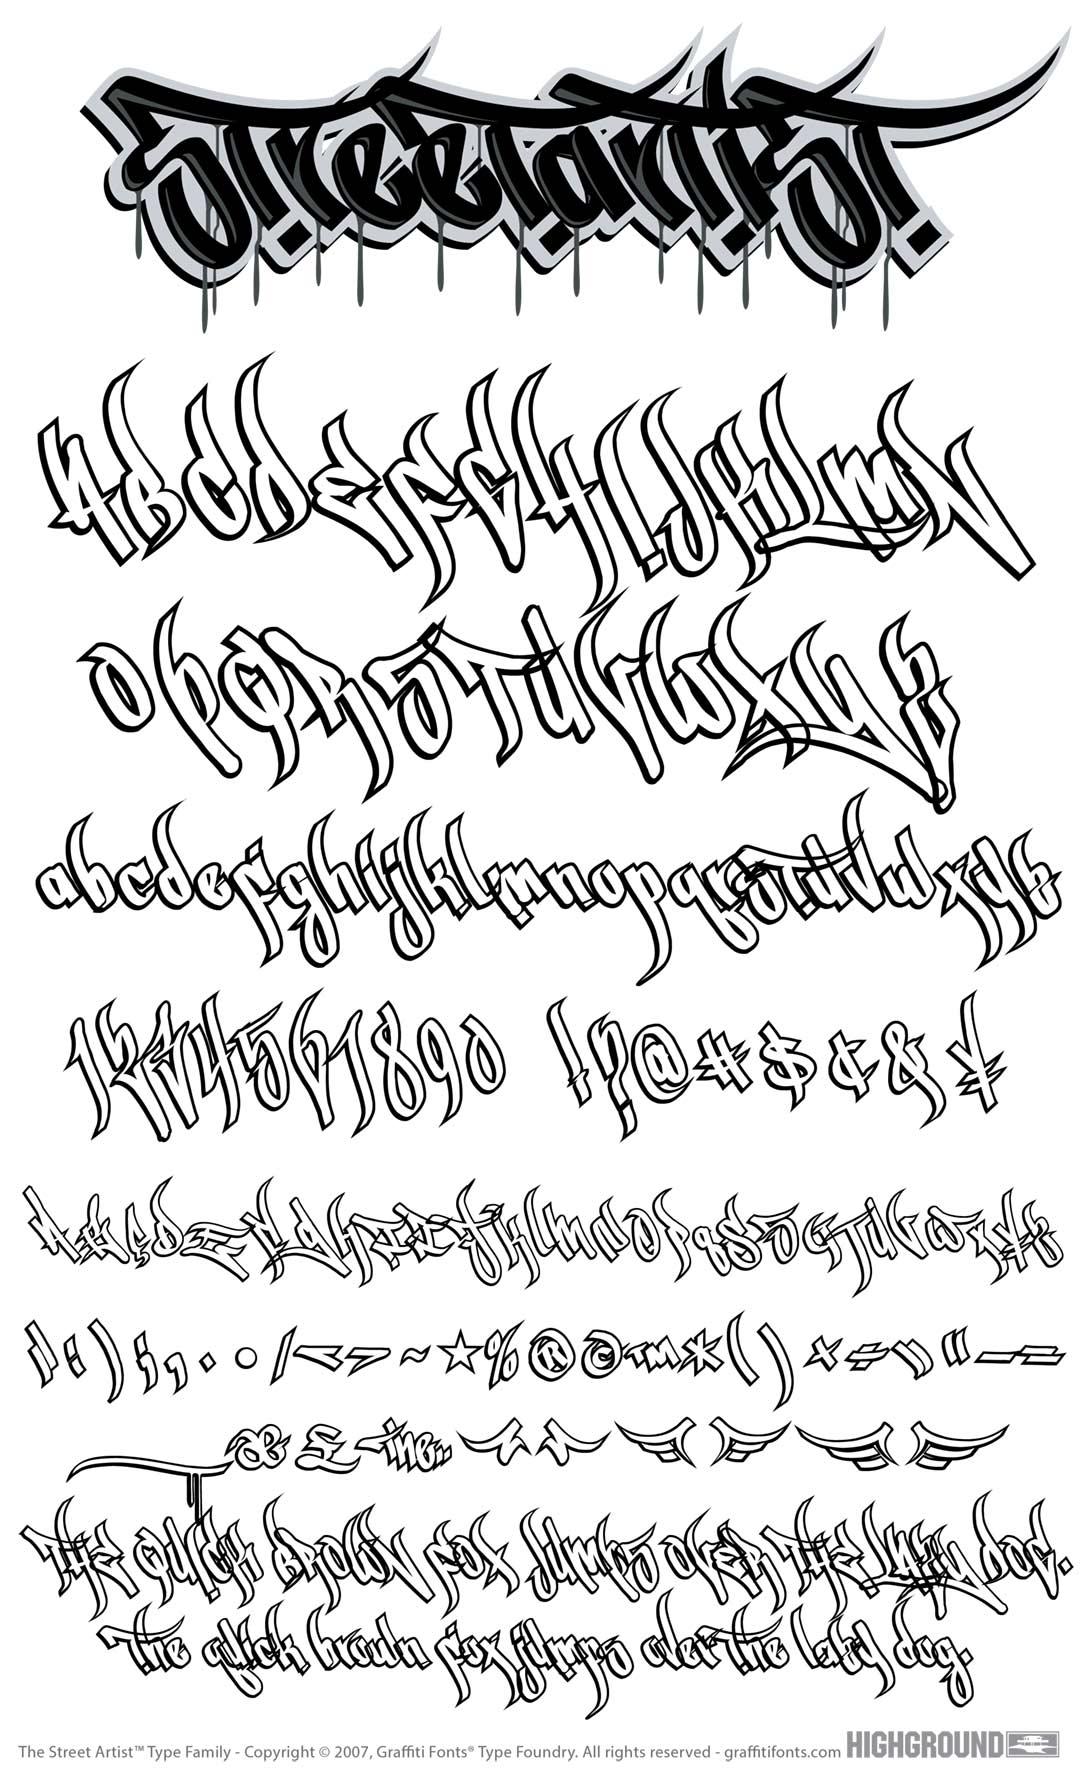 StreetartisT
ABCDEFGHIJKLMN
OPQRSTUVWXYZ
abcdefghijklmnopqrstuvwxyz
1234567890 !?@#$¢&¥
ABCDEFGHIJKLMNOPQRSTUVWXYZ
':);,.•/<>~★%®©™*()×÷"–=
æ £ the..
THE QUICK BROWN FOX JUMPS OVER THE LAZY DOG.
The quick brown fox jumps over the lazy dog.
The Street Artist™ Type Family - Copyright © 2007, Graffiti Fonts® Type Foundry. All rights reserved - graffitifonts.com HIGHGROUND